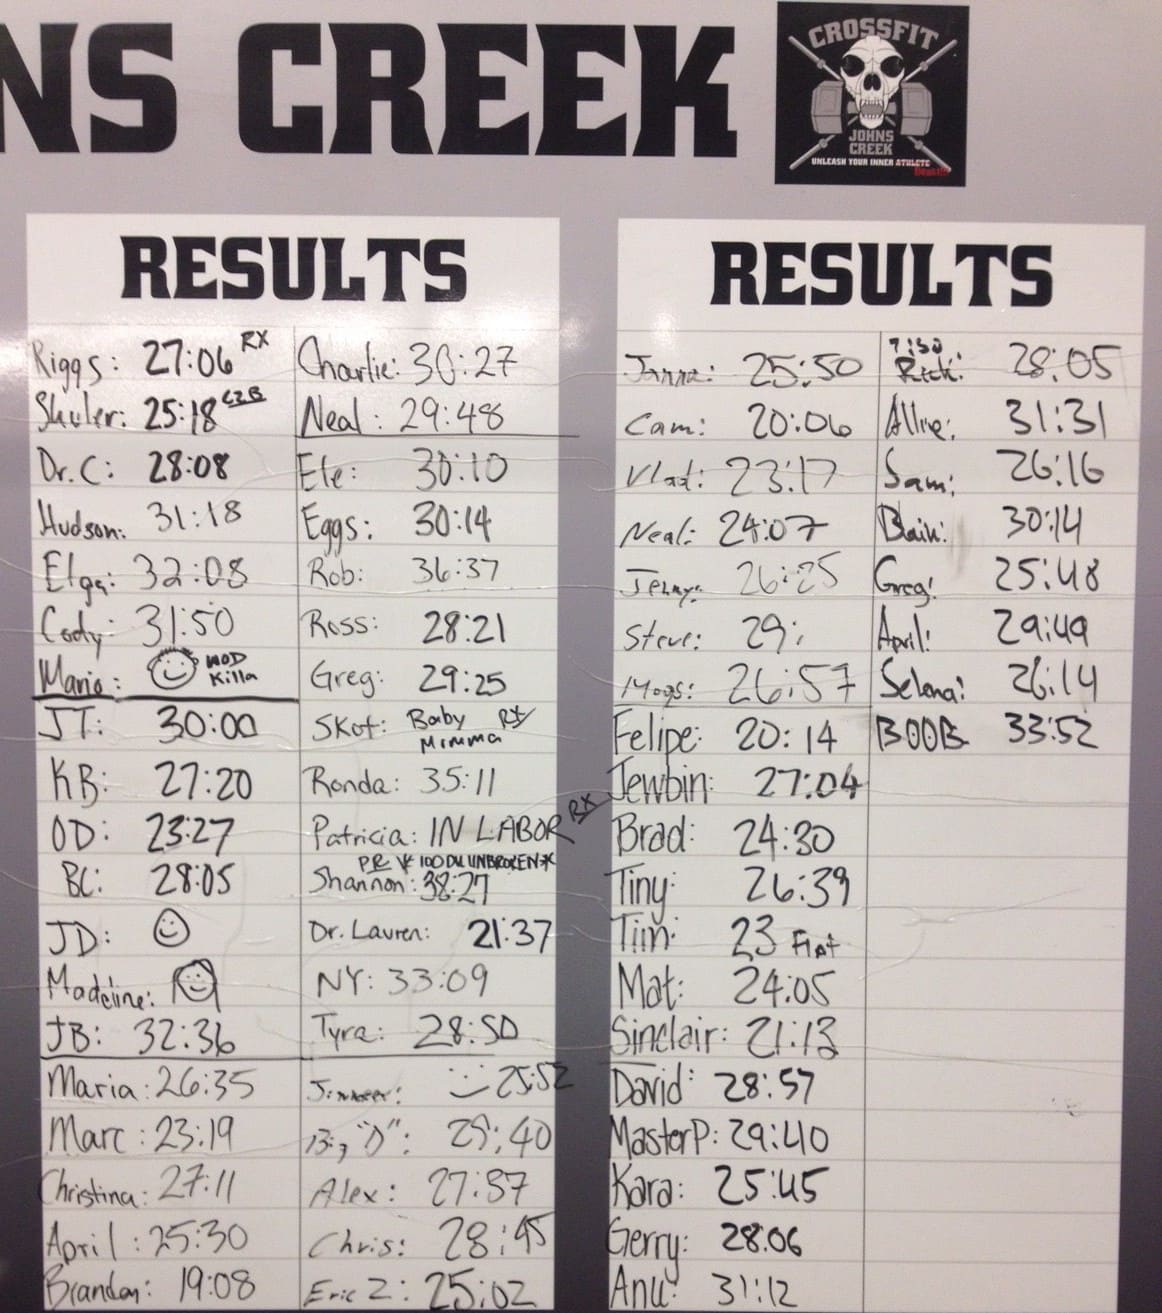 NS CREEK
CROSSFIT
JOHNS
CREEK
UNLEASH YOUR INNER ATHLETE
Beast!!!
RESULTS
Riggs: 27:06 RX
Shuler: 25:18 C2B
Dr. C: 28:08
Hudson: 31:18
Elga: 32:08
Cody: 31:50
Mario: WOD
Killa
JT: 30:00
KB: 27:20
OD: 23:27
BC: 28:05
JD:
Madeline:
JB: 32:36
Maria: 26:35
Marc: 23:19
Christina: 27:11
April: 25:30
Brandon: 19:08
Charlie: 30:27
Neal: 29:48
Ele: 30:10
Eggs: 30:14
Rob: 36:37
Ross: 28:21
Greg: 29:25
SKot: Baby RX
Mimma
Ronda: 35:11
Patricia: IN LABOR RX
PR * 100 DU UNBROKEN *
Shannon: 38:27
Dr. Lauren: 21:37
NY: 33:09
Tyra: 28:50
25:52
Big "D": 29:40
Alex: 27:37
Chris: 28:45
Eric Z: 25:02
RESULTS
25:50
Cam: 20:06
Vlad: 23:17
Neal: 24:07
Jenny: 26:25
Steve: 29:
Mogs: 26:57
Felipe: 20:14
Jewbin: 27:04
Brad: 24:30
Tiny: 26:39
Tim: 23 Flat
Mat: 24:05
Sinclair: 21:13
David: 28:57
MasterP: 29:40
Kara: 25:45
Gerry: 28:06
Anu: 31:12
9:30
Rick: 28:05
Allie: 31:31
Sam: 26:16
Blair: 30:14
Greg: 25:48
April: 29:49
Selena: 26:14
BOOB 33:52